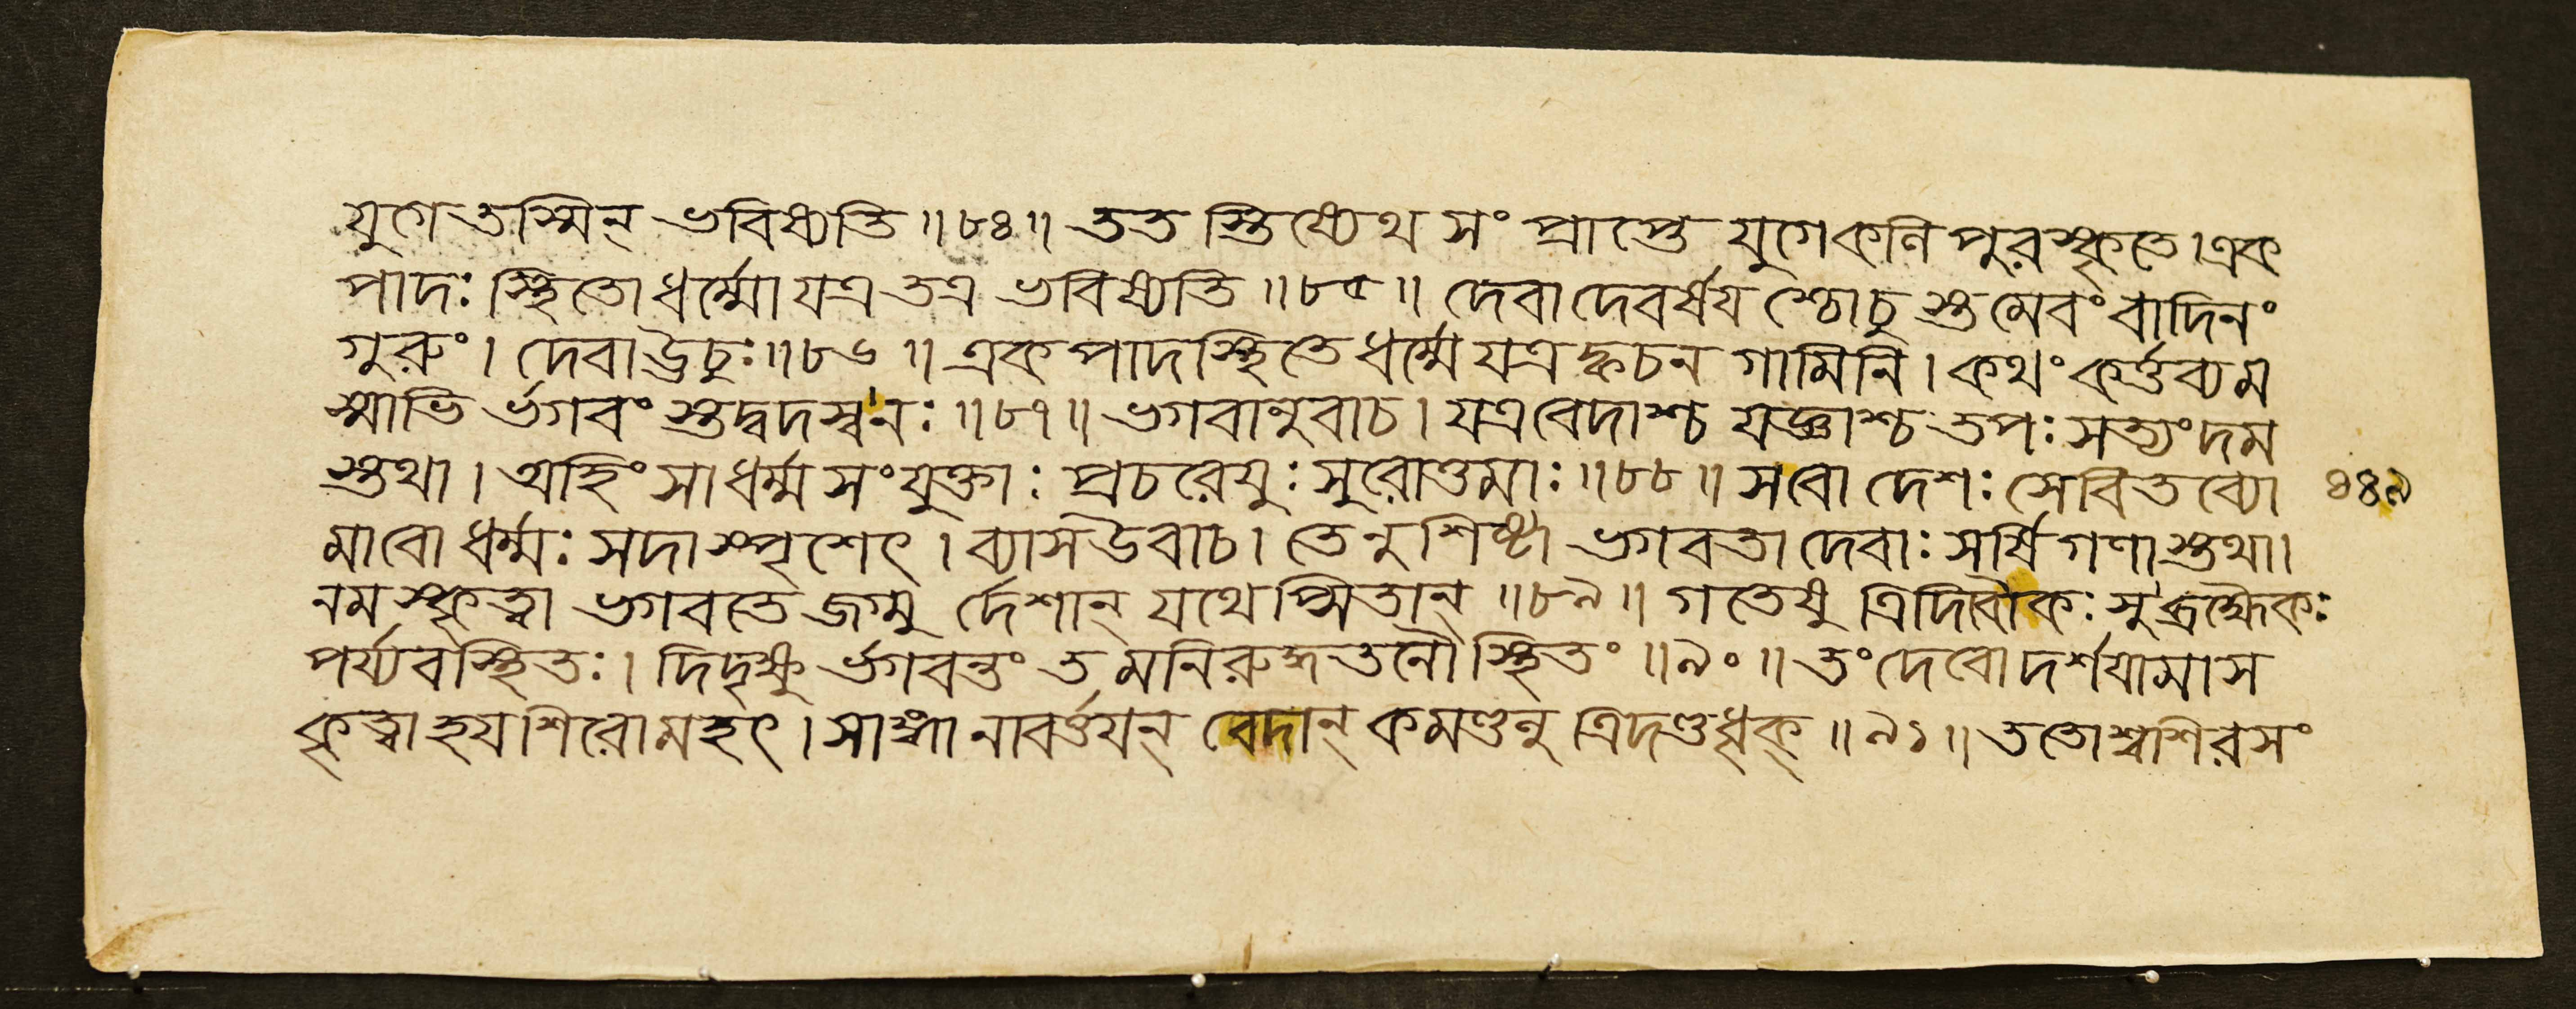 যুগে তস্মিন্ ভবিষ্যতি ॥ ৮৪ ॥ ততস্তিষ্যেথ সংপ্রাপ্তে যুগে কলি পুরস্কৃতে । এক
পাদঃ স্থিতো ধর্ম্মো যত্র তত্র ভবিষ্যতি ॥ ৮৫ ॥ দেবা দেবর্ষয শ্চোচু স্তমেবং বাদিনং
গুরুং । দেবা ঊচুঃ ॥ ৮৬ ॥ একপাদস্থিতে ধর্ম্মে যত্র ক্বচন গামিনি । কথং কর্ত্তব্যম
স্মাভি র্ভগবং স্তদ্বদস্ব নঃ ॥ ৮৭ ॥ ভগবানুবাচ । যত্র বেদাশ্চ যজ্ঞাশ্চ তপঃ সত্যং দম
স্তথা । অহিংসা ধর্ম্ম সংযুক্তাঃ প্রচরেযুঃ সুরোত্তমাঃ ॥ ৮৮ ॥ সবো দেশঃ সেবিতব্যো ৩৪৯
মাবো ধর্ম্মঃ সদা স্পৃশেৎ । ব্যাস উবাচ । তেনুশিষ্টা ভগবতা দেবাঃ সর্ষি গণাস্তথা ।
নমস্কৃত্বা ভগবতে জগ্মু র্দেশান্ যথেপ্সিতান্ ॥ ৮৯ ॥ গতেষু ত্রিদিবৌকঃসু ব্রহ্মৈকঃ
পর্য্যবস্থিতঃ । দিদৃক্ষু র্ভগবন্তং তমনিরুদ্ধতনৌ স্থিতং ॥ ৯০ ॥ তং দেবো দর্শযামাস
কৃত্বা হযশিরো মহৎ । সাঙ্গানাবর্ত্তযন্ বেদান্ কমণ্ডলু ত্রিদণ্ডধৃক্ ॥ ৯১ ॥ ততোশ্বশিরসং